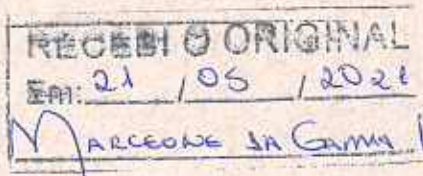 RECEBI O ORIGINAL
Em: 21 / 05 / 2021
MARCEONE DA GAMA